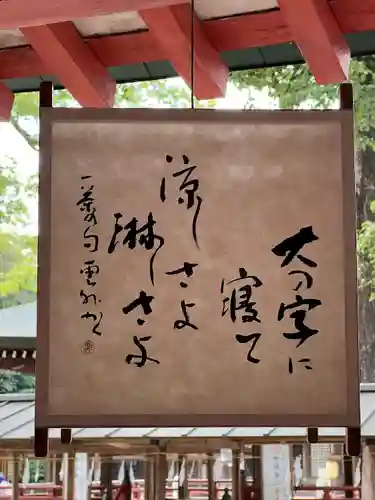 大の字に
寝て
涼しさよ
淋しさよ
一茶の句 雲外書